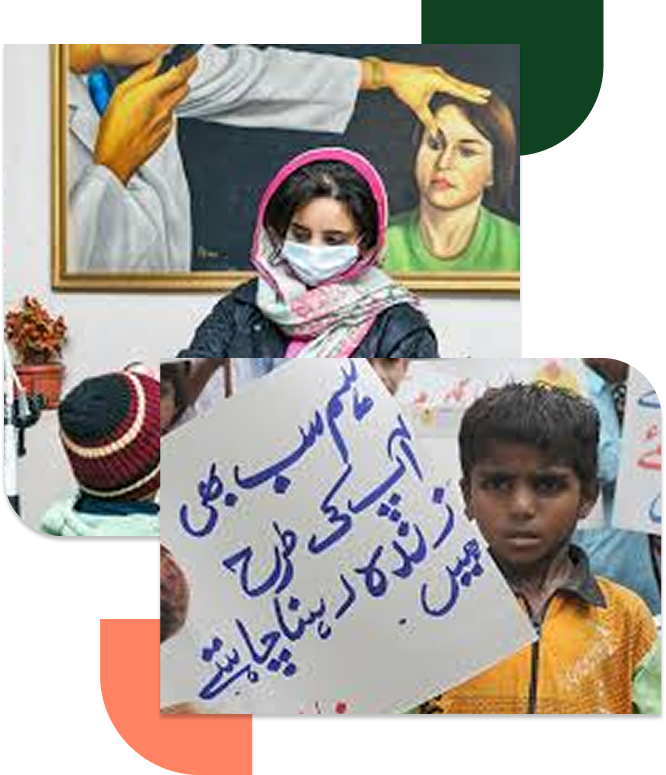 ہم سب بھی
آپ کی طرح
زندہ رہنا چاہتے
ہیں